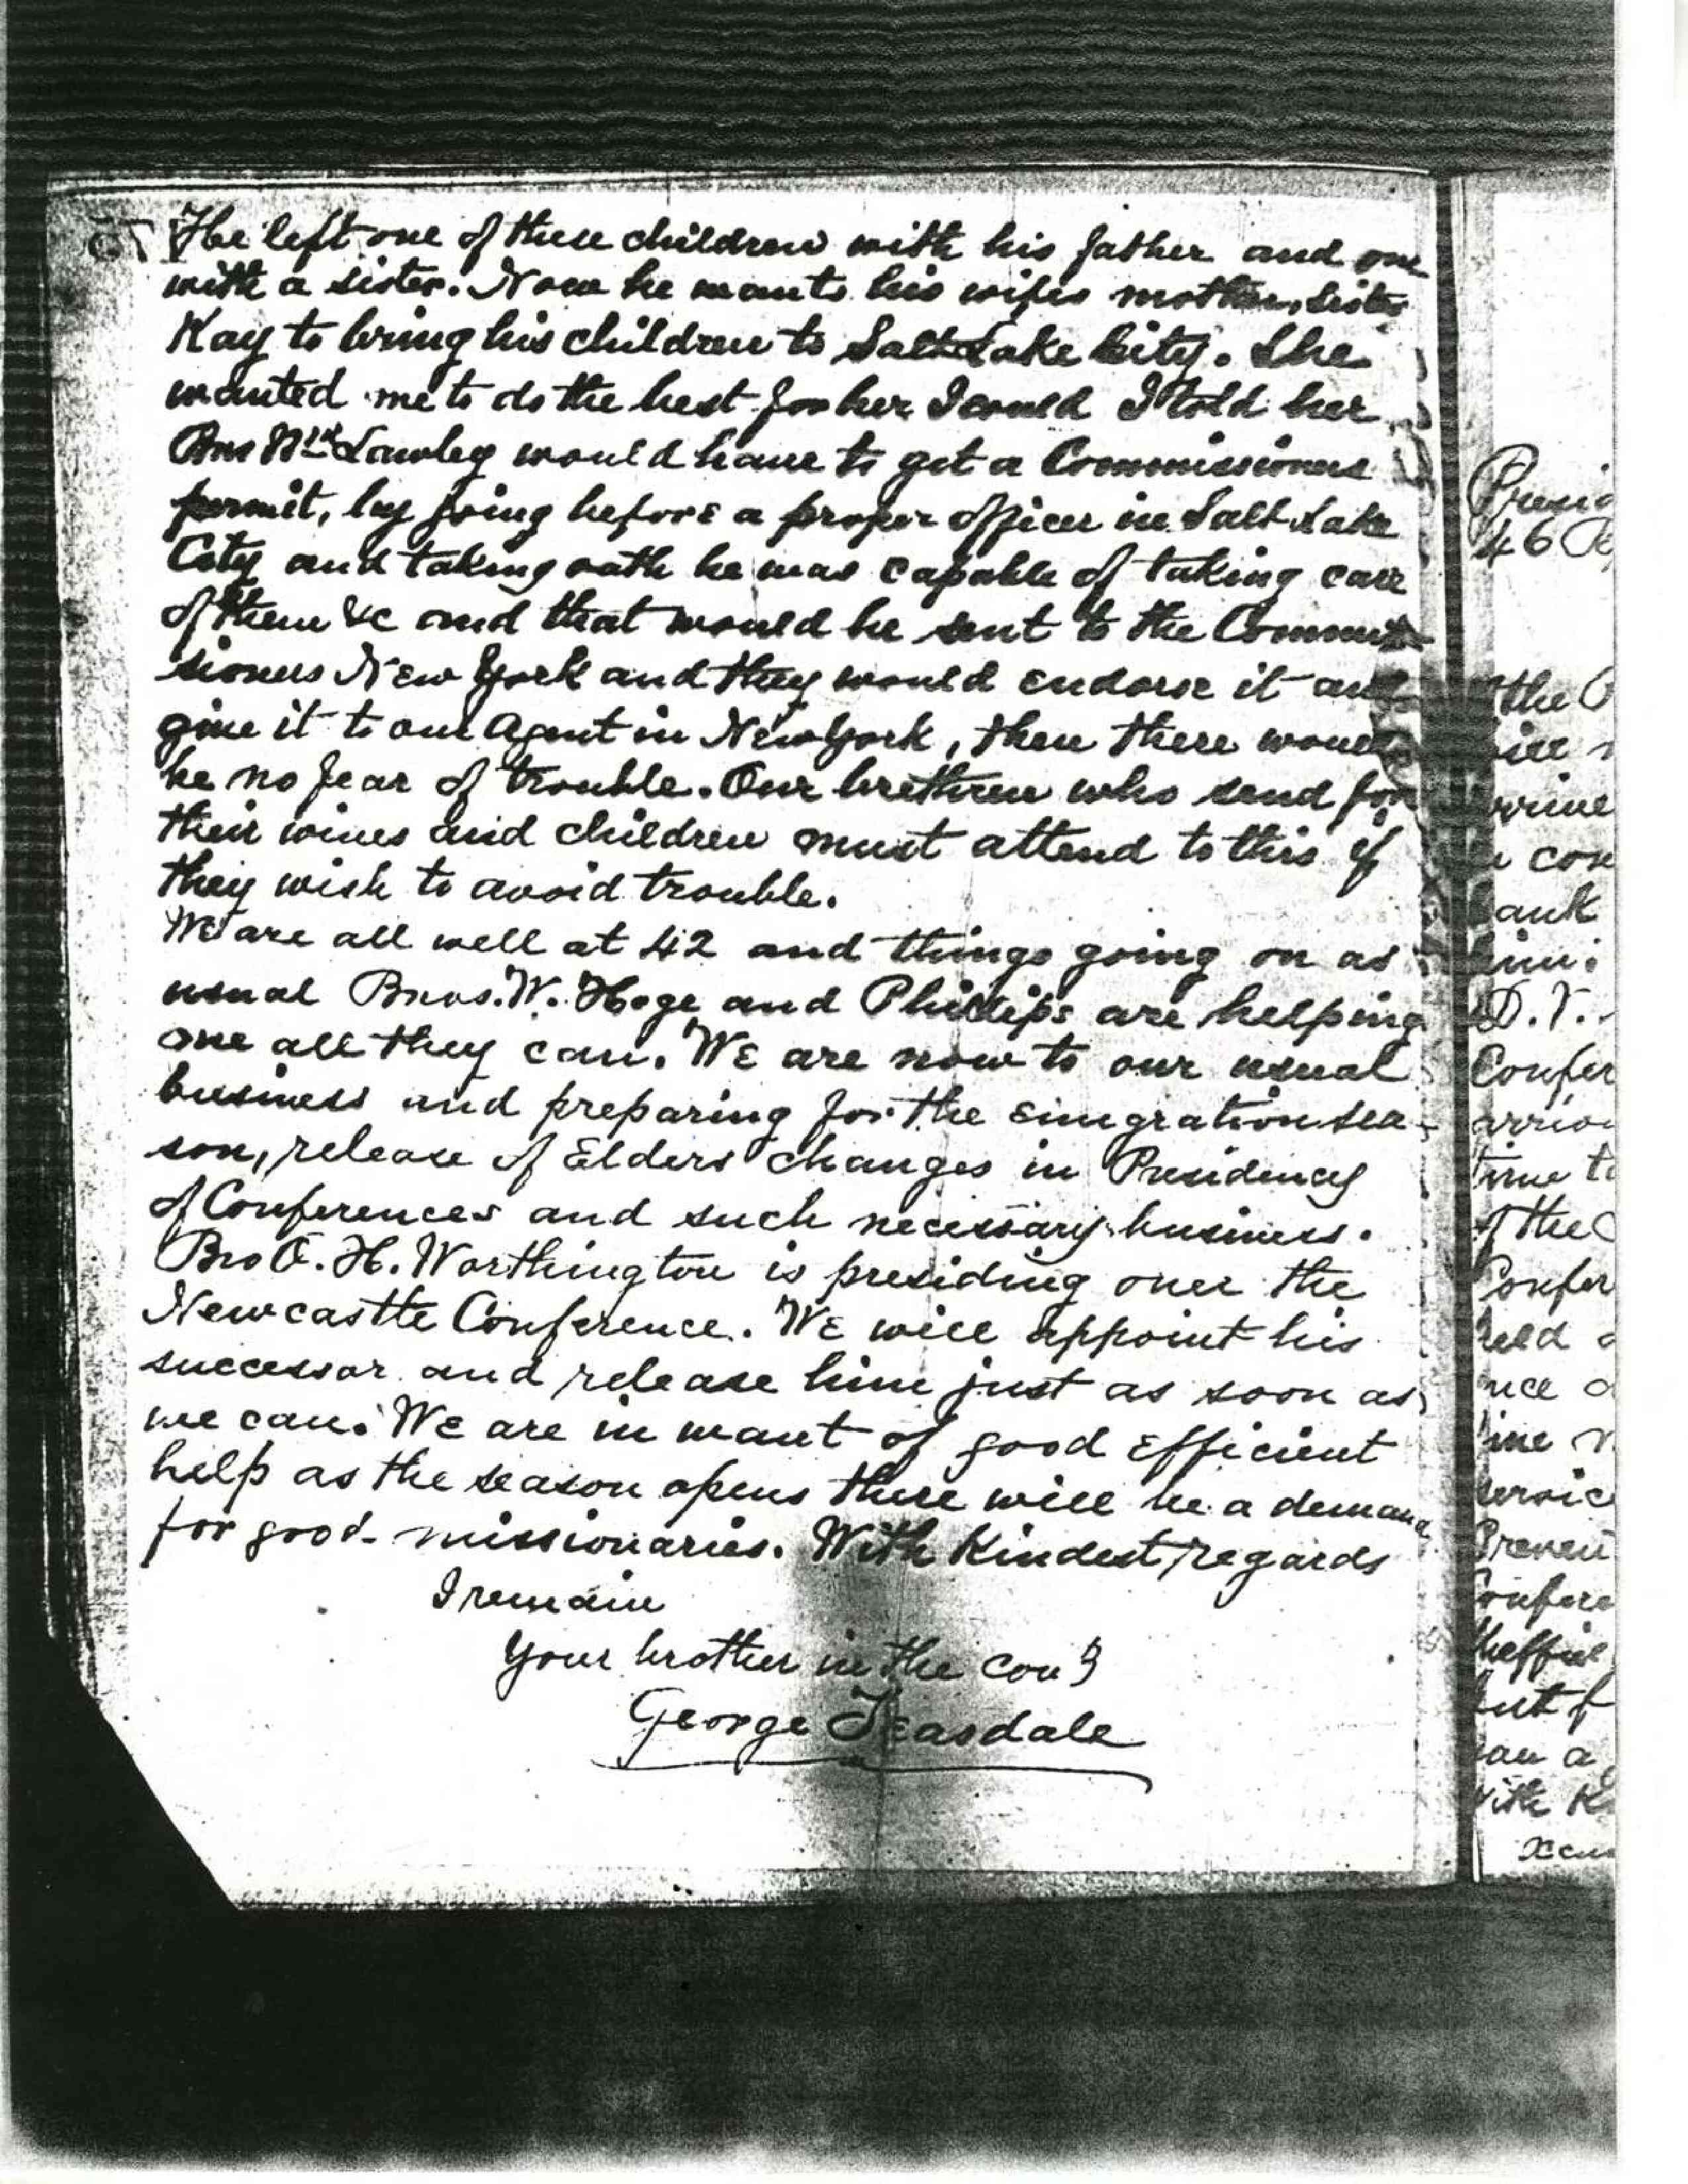 He left one of these children with his father and one
with a sister. Now he wants his wifes mother, Sister
Kay to bring his children to Salt Lake City. She
wanted me to do the best for her I could I told her
Bro Wm Lawley would have to get a Commissioners
permit, by going before a proper officer in Salt Lake
City and taking oath he was capable of taking care
of them &c and that would be sent to the Commis-
sioners New York and they would endorse it and
give it to our Agent in New York, then there would
be no fear of trouble. Our brethren who send for
their wives and children must attend to this if
they wish to avoid trouble.
We are all well at 42 and things going on as
usual Bros. W. Hoge and Phillips are helping
me all they can. We are now to our usual
business and preparing for the emigration sea-
son, release of Elders changes in Presidency
of Conferences and such necessary business.
Bro O. H. Worthington is presiding over the
Newcastle Conference. We will appoint his
successor and release him just as soon as
we can. We are in want of good efficient
help as the season opens there will be a demand
for good missionaries. With kindest regards
I remain
Your brother in the cov
George Teasdale
46
the
arrive
D. T.
Confer
time to
of the
Confer
held